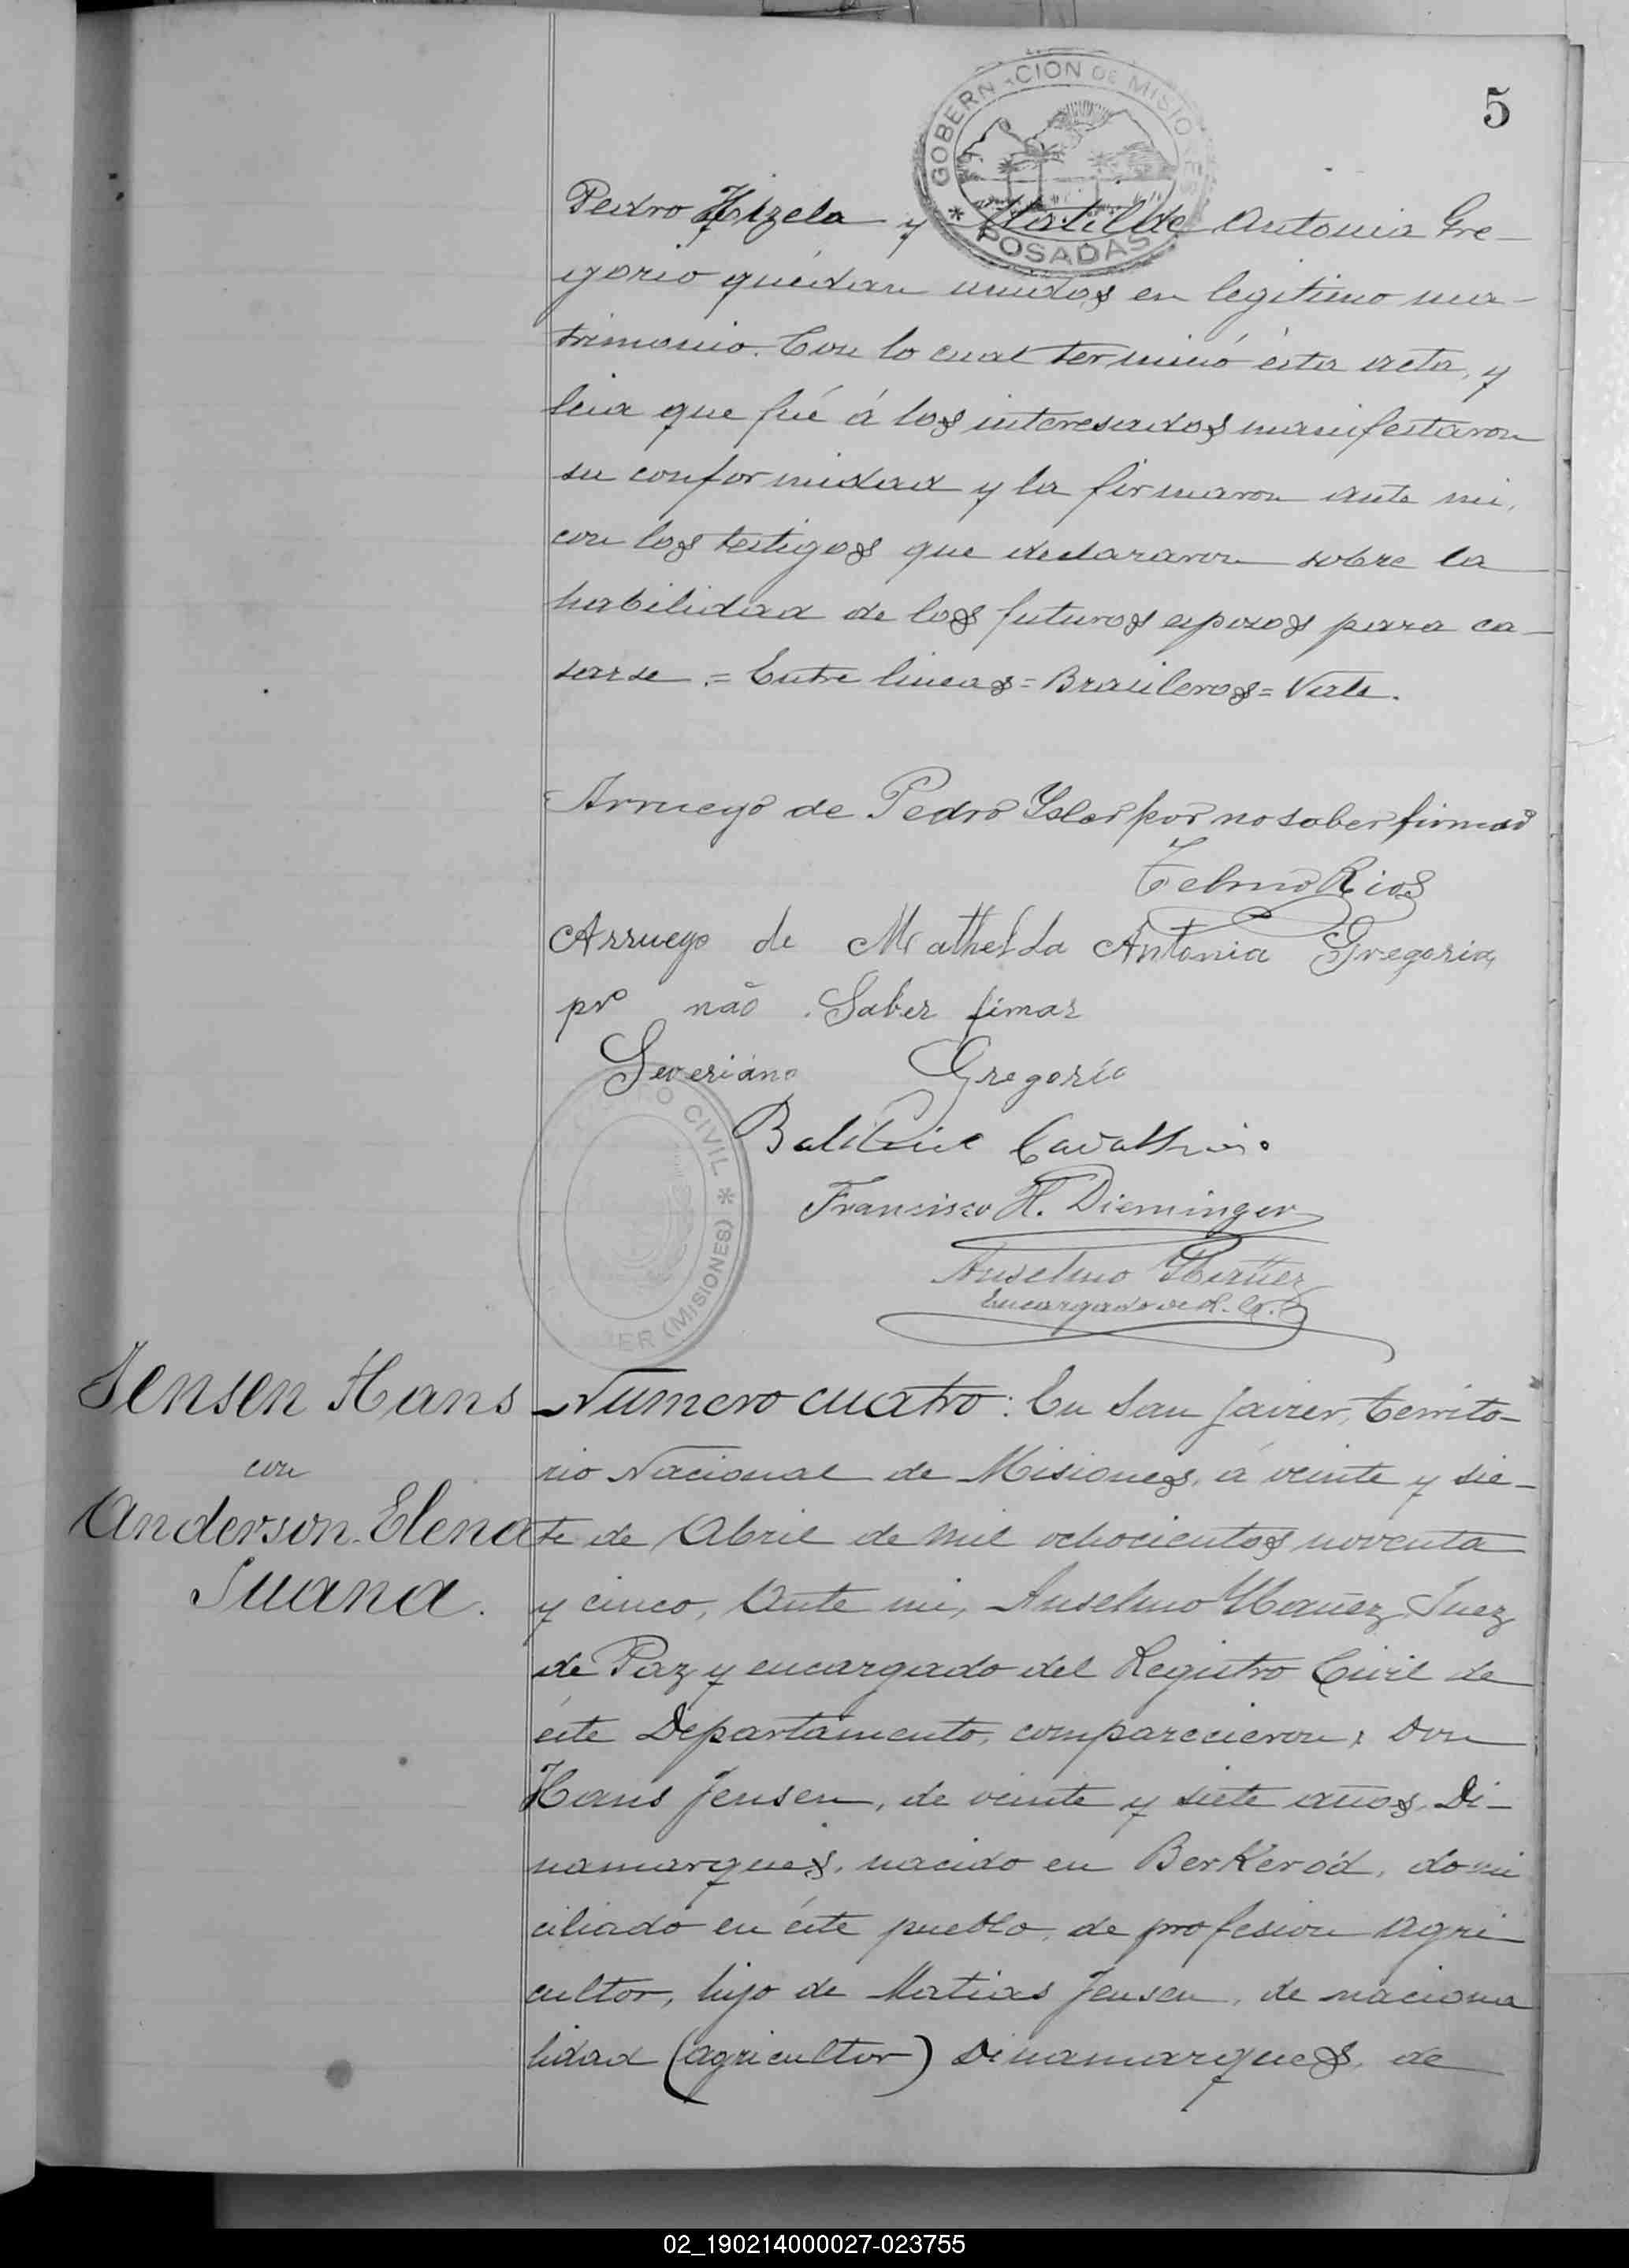 5
GOBERNACION DE MISIONES
* POSADAS
Pedro y Matilde Antonia Gre-
gorio quedan unidos en legitimo ma-
trimonio. Con lo cual terminó ésta acta, y
leia que fué á los interesados manifestaron
su conformidad y la firmaron ante mi,
con los testigos que declararon sobre la
habilidad de los futuros esposos para ca-
sarse.= Entre lineas = Brasileros = Vale.
Arruego de Pedro por no saber firmar
Telmo Rios
Arruego de Mathelda Antonia Gregoria,
pr não Saber fimar
Severiano Gregorio
CIVIL * (MISIONES)
Francisco H. Dieminger
Anselmo Ybañez
Encargado de R. C.
Jensen Hans
con
Anderson Elena
Juana.
Numero cuatro: En San Javier, Territo-
rio Nacional de Misiones, á veinte y sie-
te de Abril de mil ochocientos noventa
y cinco, Ante mi, Anselmo Ybañez, Juez
de Paz y encargado del Registro Civil de
éste Departamento, comparecieron, Don
Hans Jensen, de veinte y siete años, Di-
namarques, nacido en Berkeród, domi
ciliado en éste pueblo, de profesion agri
cultor, hijo de Matias Jensen, de naciona
lidad (agricultor) Dinamarques, de
02_190214000027-023755